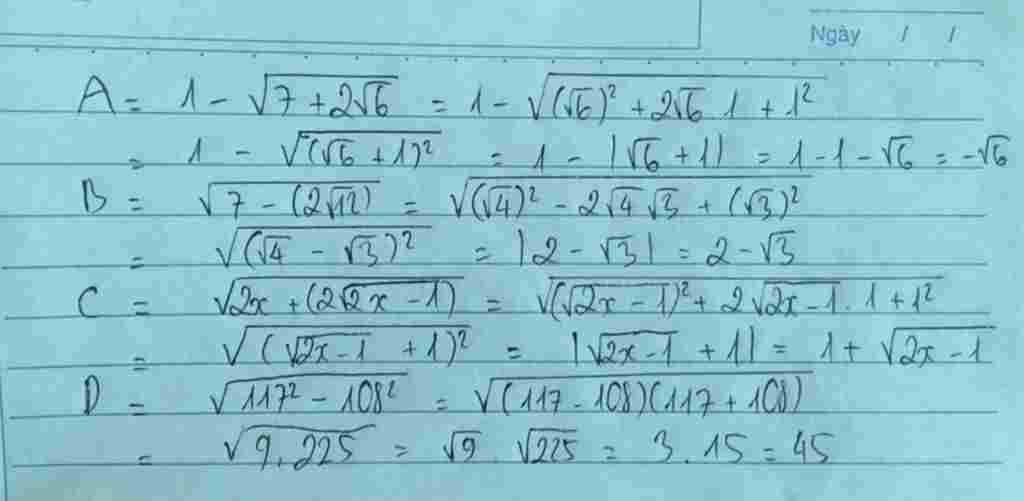 Ngày / /
A = 1 - √(7 + 2√6) = 1 - √((√6)² + 2√6 1 + 1²)
= 1 - √((√6 + 1)²) = 1 - |√6 + 1| = 1 - 1 - √6 = -√6
B = √(7 - (2√12)) = √((√4)² - 2√4 √3 + (√3)²)
= √((√4 - √3)²) = |2 - √3| = 2 - √3
C = √(2x + (2√(2x - 1))) = √((√(2x - 1))² + 2√(2x - 1) . 1 + 1²)
= √((√(2x - 1) + 1)²) = |√(2x - 1) + 1| = 1 + √(2x - 1)
D = √(117² - 108²) = √((117 - 108)(117 + 108))
= √(9 . 225) = √9 . √225 = 3 . 15 = 45